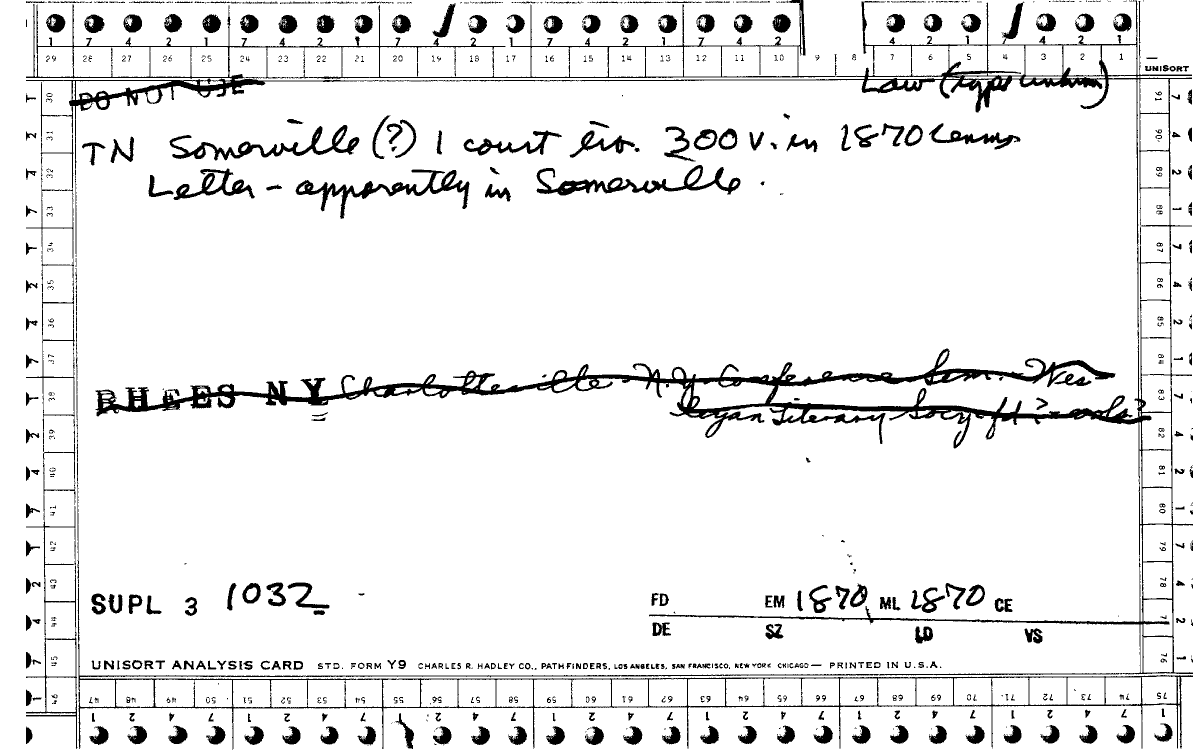 1 7 4 2 1 7 4 2 1 7 4 2 1 7 4 2 1 7 4 2 1 7 4 2 1
29 28 27 26 25 24 23 22 21 20 19 18 17 16 15 14 13 12 11 10 9 8 7 6 5 4 3 2 1
UNISORT
DO NOT USE
Law (type unkn)
TN Somerville (?) 1 court lib. 300 v. in 1870 Census
Letter - apparently in Somerville.
RHEES NY Charlotteville N.Y. Conference Sem. Wes-
leyan Literary Socy fd ? - vols ?
SUPL 3 1032
FD EM 1870 ML 1870 CE
DE SZ LD VS
UNISORT ANALYSIS CARD STD. FORM Y9 CHARLES R. HADLEY CO., PATHFINDERS, LOS ANGELES, SAN FRANCISCO, NEW YORK CHICAGO — PRINTED IN U.S.A.
47 48 49 50 51 52 53 54 55 56 57 58 59 60 61 62 63 64 65 66 67 68 69 70 71 72 73 74 75